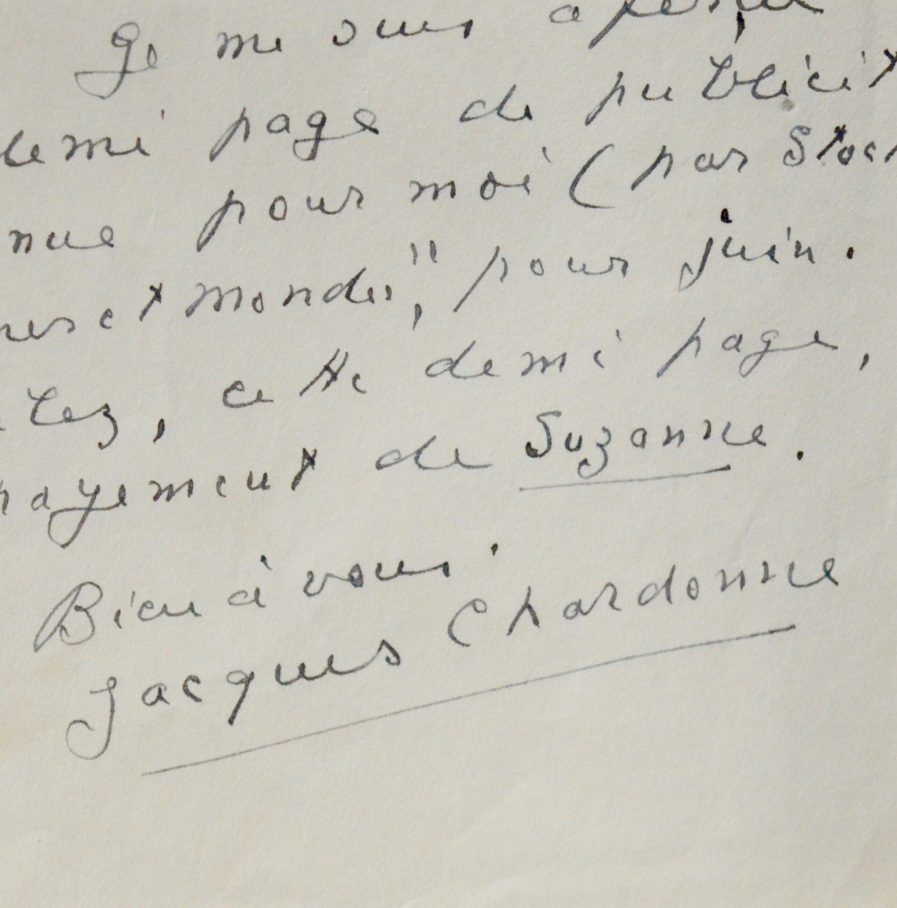 Je me suis aperçu
demi page de publicit
nue pour moi (par Stoc
mes et mondes", pour juin.
tez, cette demi page,
payement de Suzanne.
Bien à vous.
Jacques Chardonne